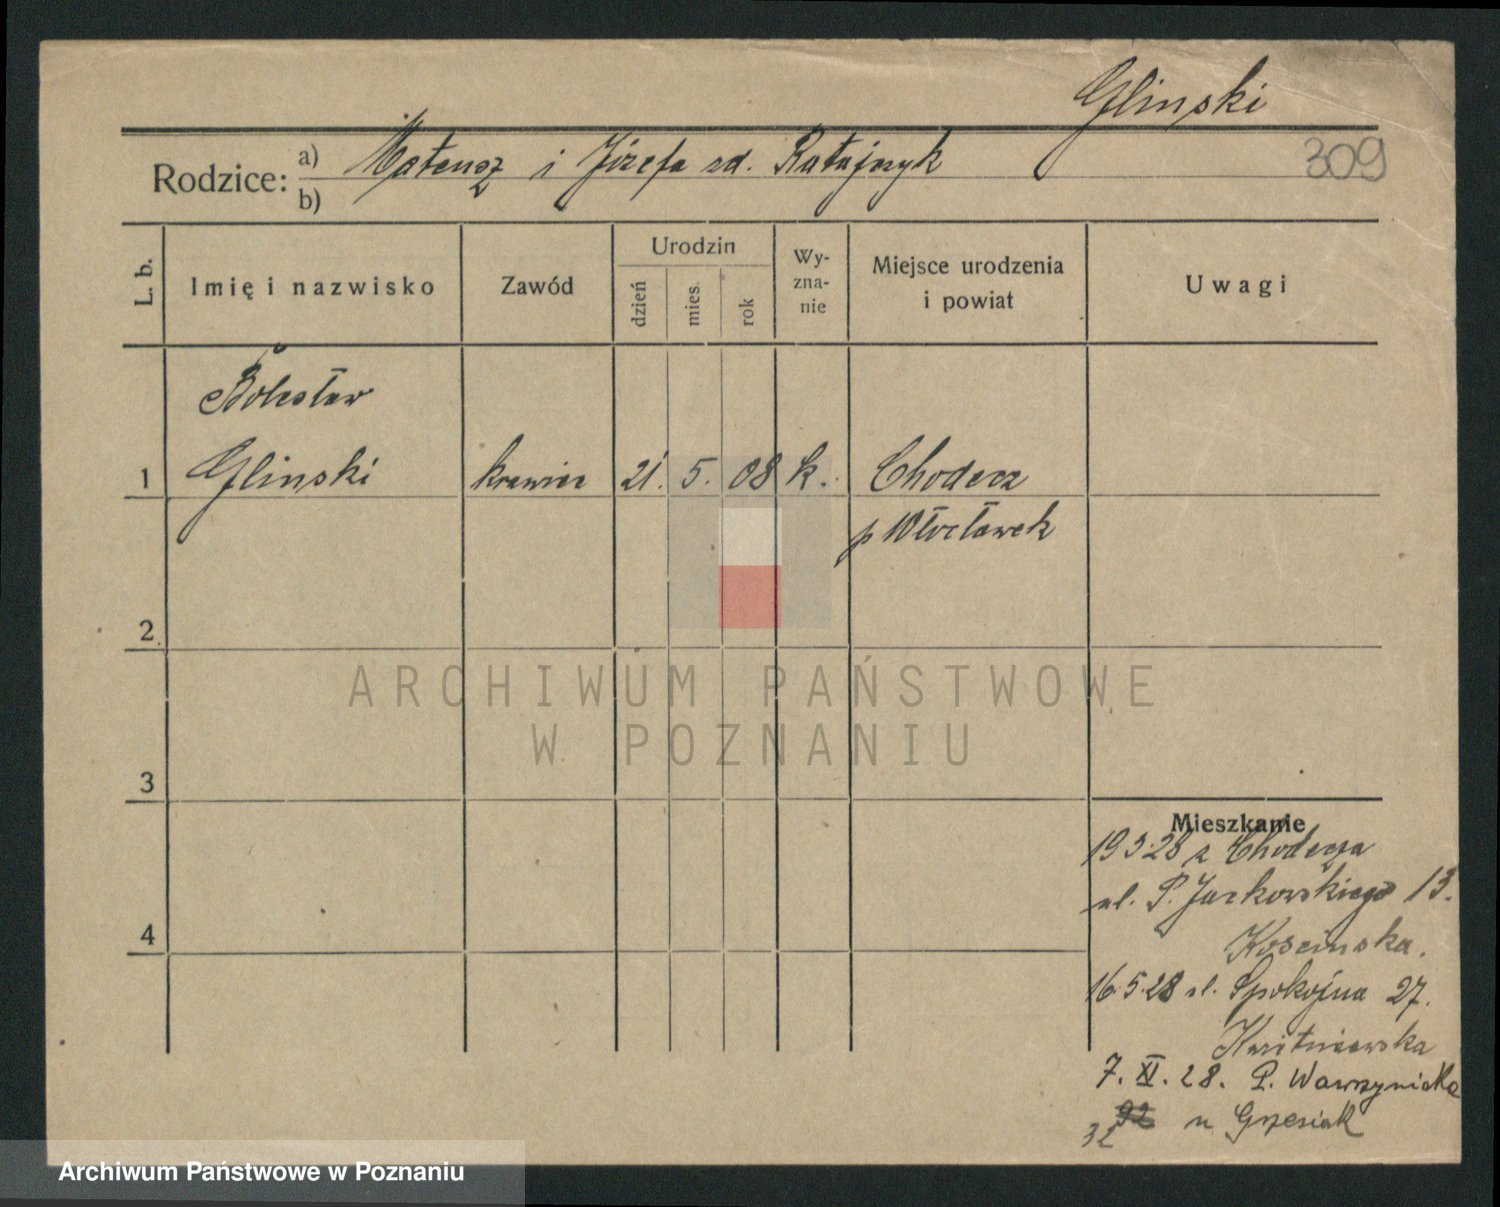 Glinski
309
Rodzice: a) Mateusz i Józefa zd. Ratajczyk
b)
L. b. Imię i nazwisko Zawód Urodzin dzień mies. rok Wy-zna-nie Miejsce urodzenia i powiat Uwagi
Bolesław
1 Glinski krawiec 21. 5. 08 k. Chodecz
p Włocławek
2
3
4
Mieszkanie
19 3.28 z Chodecza
ul. P. Jackowskiego 13.
Koscinska.
16.5.28 ul. Spokojna 27.
Kwitniewska
7. XI. 28. P. Wawrzyniaka
32 u Grzesiak
ARCHIWUM PAŃSTWOWE
W POZNANIU
Archiwum Państwowe w Poznaniu